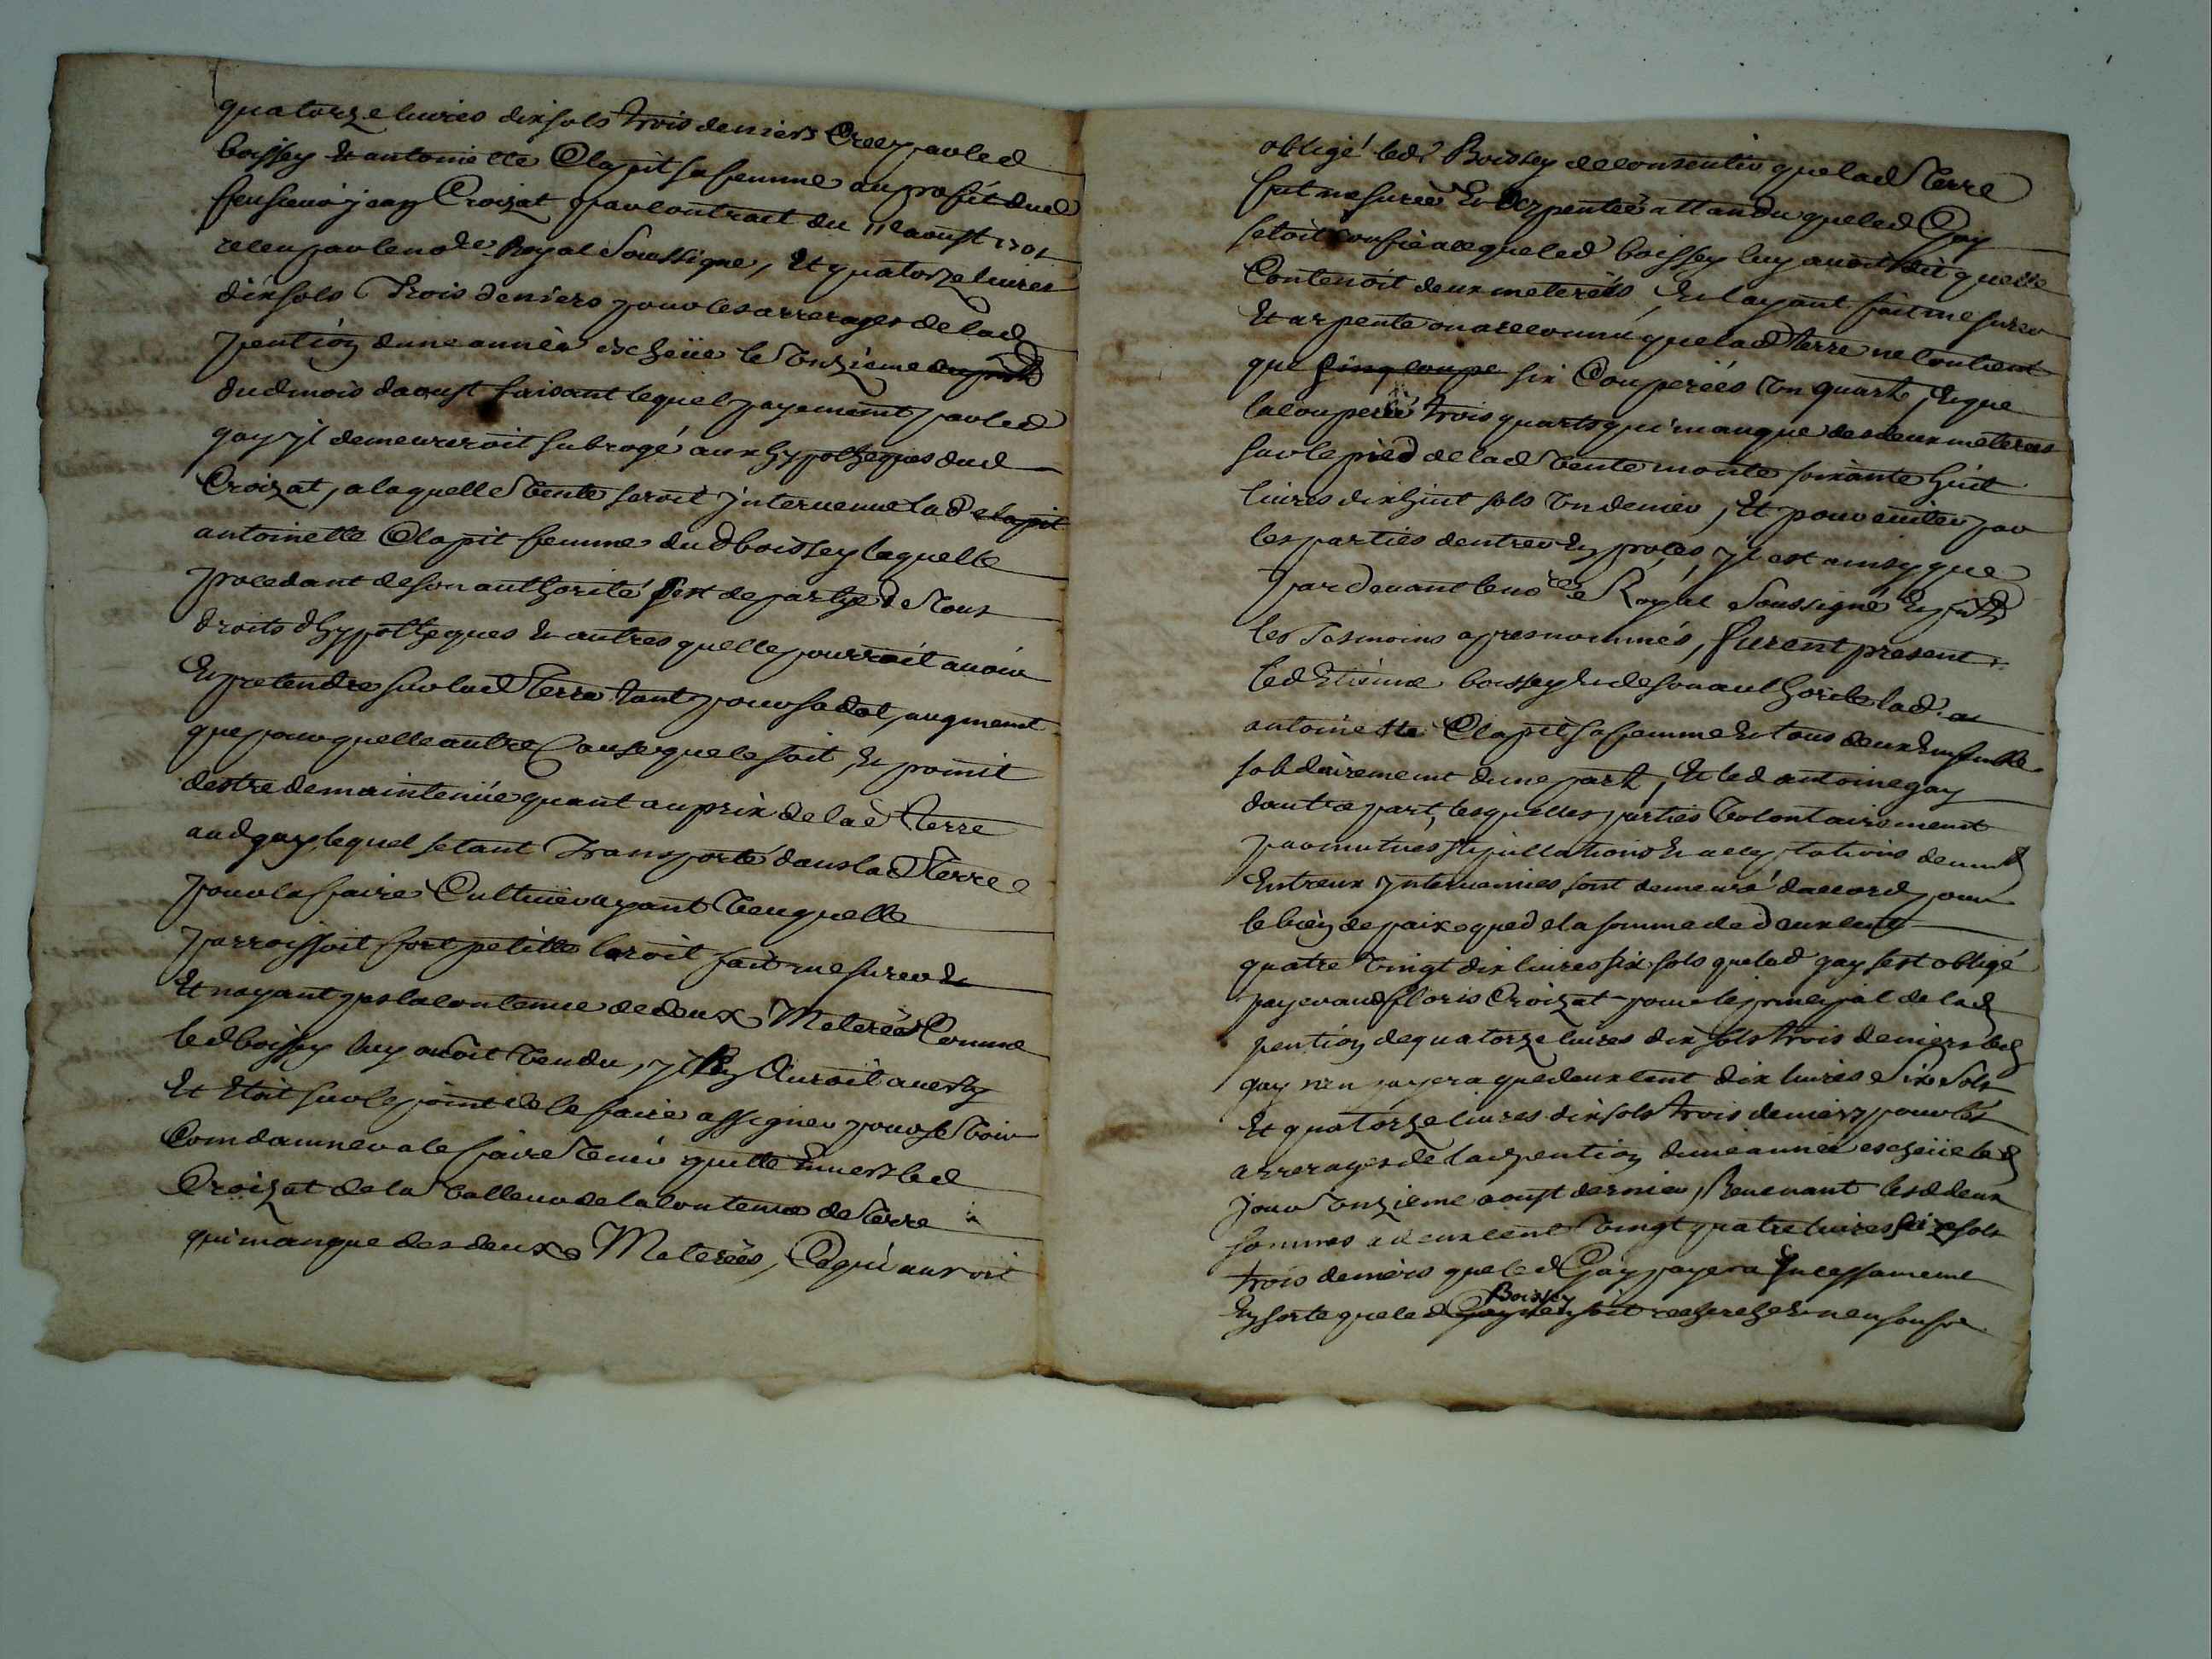 quatorze livres dix sols trois deniers Creez par led
boissey Et antoinette Clapit sa femme au profit dud
feu sieur jean Croizat par contract du 11e aoust 1701
receu par le no.re Royal Soussigne, Et quatorze livres
dix sols Trois deniers pour les arrerages de lad
pention dune année escheüe le onzieme
dud mois daoust faisant lequel payement par led
gay jl demeureroit subrogé aux hypotheques dud
Croizat, a laquelle vente seroit jntervenue lad clapit
antoinette Clapit femme dud boissey laquelle
procedant de son authorité sest departye de tous
droits dhypotheques & autres quelle pourroit avoir
Et pretendre sur lad Terre tant pour sa dot, augment
que pour quelle autre Cause que le soit, Et promit
destre de maintenüe quant au prix de la d terre
aud gay, lequel setant Transporté dans lad Terre
pour la faire Cultiver ayant veu quelle
parroissoit fort petitte laroit fait mesurer &
Et nayant pas la contenue de deux Meterées Comme
led boissey luy avoit vendu, jl len Auroit averty
Et Etoit sur le point de le faire assigner pour se voir
Comdamner a le faire tenir quitte Envers led
Croizat de la valleur de la contenue de Terre
qui manque des deux Meterées, Ce qui auroit
obligé led Boissey de consentir que lad Terre
fut mesurée Et arpentée attandu que led Gay
setoit confié a ce que led boissey luy avoit dit quelle
Contenoit deux meterées, Et layant fait mesurer
Et arpente on a reconnu que lad terre ne Contient
que cinq coupe six Couperées un quart, Et que
la couperée trois quarts qui manque des deux meterées
sur le pied de lad vente monte soixante huit
livres dix huit sols un denier, Et pour eviter par
les parties dentrer En procés, jl est ainsy que
par devant le no.re Royal Soussigné En p̄nce
les Tesmoins apres nommés, furent present
led Etienne boissey & de son authorité lad
antoinette Clapit sa femme & tous deux Ensemble
solidairement dune part, Et led antoine gay
dautre part, lesquelles parties volontairement
par mutues stipullations & acceptations deümt
Entreux jntervenues sont demeuré daccord pour
le bien de paix que de la somme de deux cent
quatre vingt dix livres six sols que led gay sest obligé
payer aud floris Croizat pour le principal de lad
pention de quatorze livres dix sols trois deniers led
gay nen payera que deux cent dix livres Six Sols
Et quatorze livres dix sols trois deniers pour les
arrerages de lad pention dune année escheüe led
jour onzieme aoust dernier, Revenant lesd deux
sommes a deux cent vingt quatre livres seize sols
trois deniers que led Gay payera Incessament
Boissey
En sorte que led Gay nen soit recherché & nen souffre